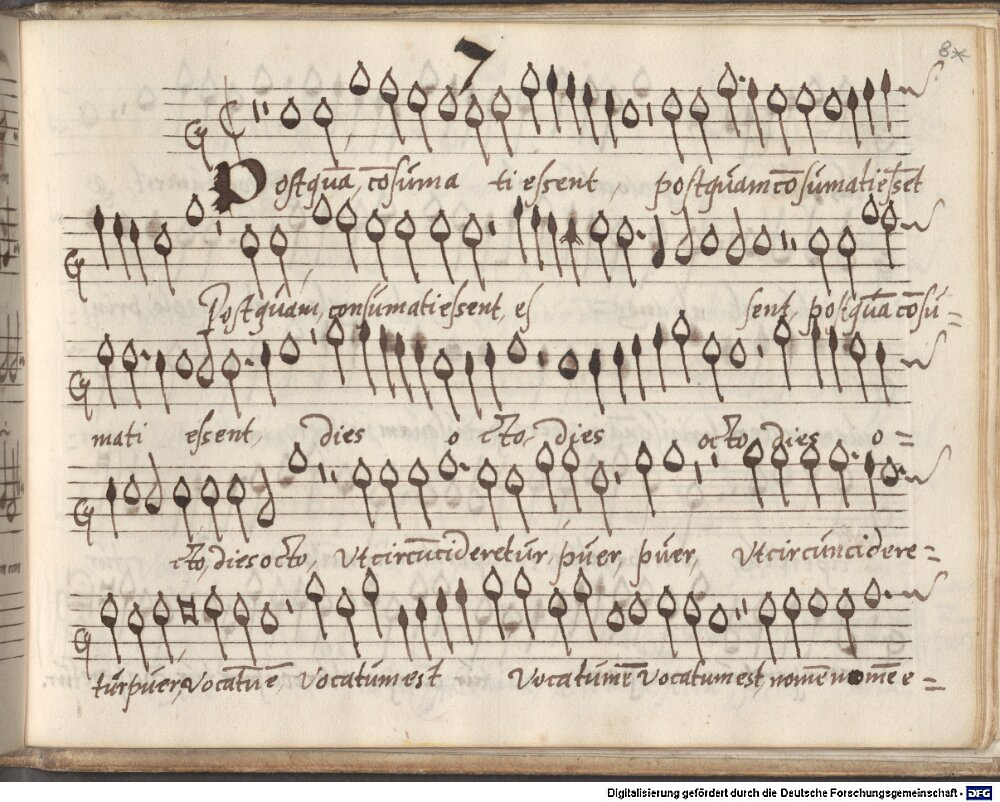 7
8*
Postquā, cōsuma ti essent, postquam cōsumati essēt
Postquam, consumati essent, es sent, postquā cōsu=
mati essent, dies o cto, dies octo, dies o=
cto, dies octo, Ut circūcideretur, puer, puer, Ut circuncidere=
tur puer, vocatū ē, vocatum est vocatum ē vocatum est, nomē nomē e=
Digitalisierung gefördert durch die Deutsche Forschungsgemeinschaft - DFG